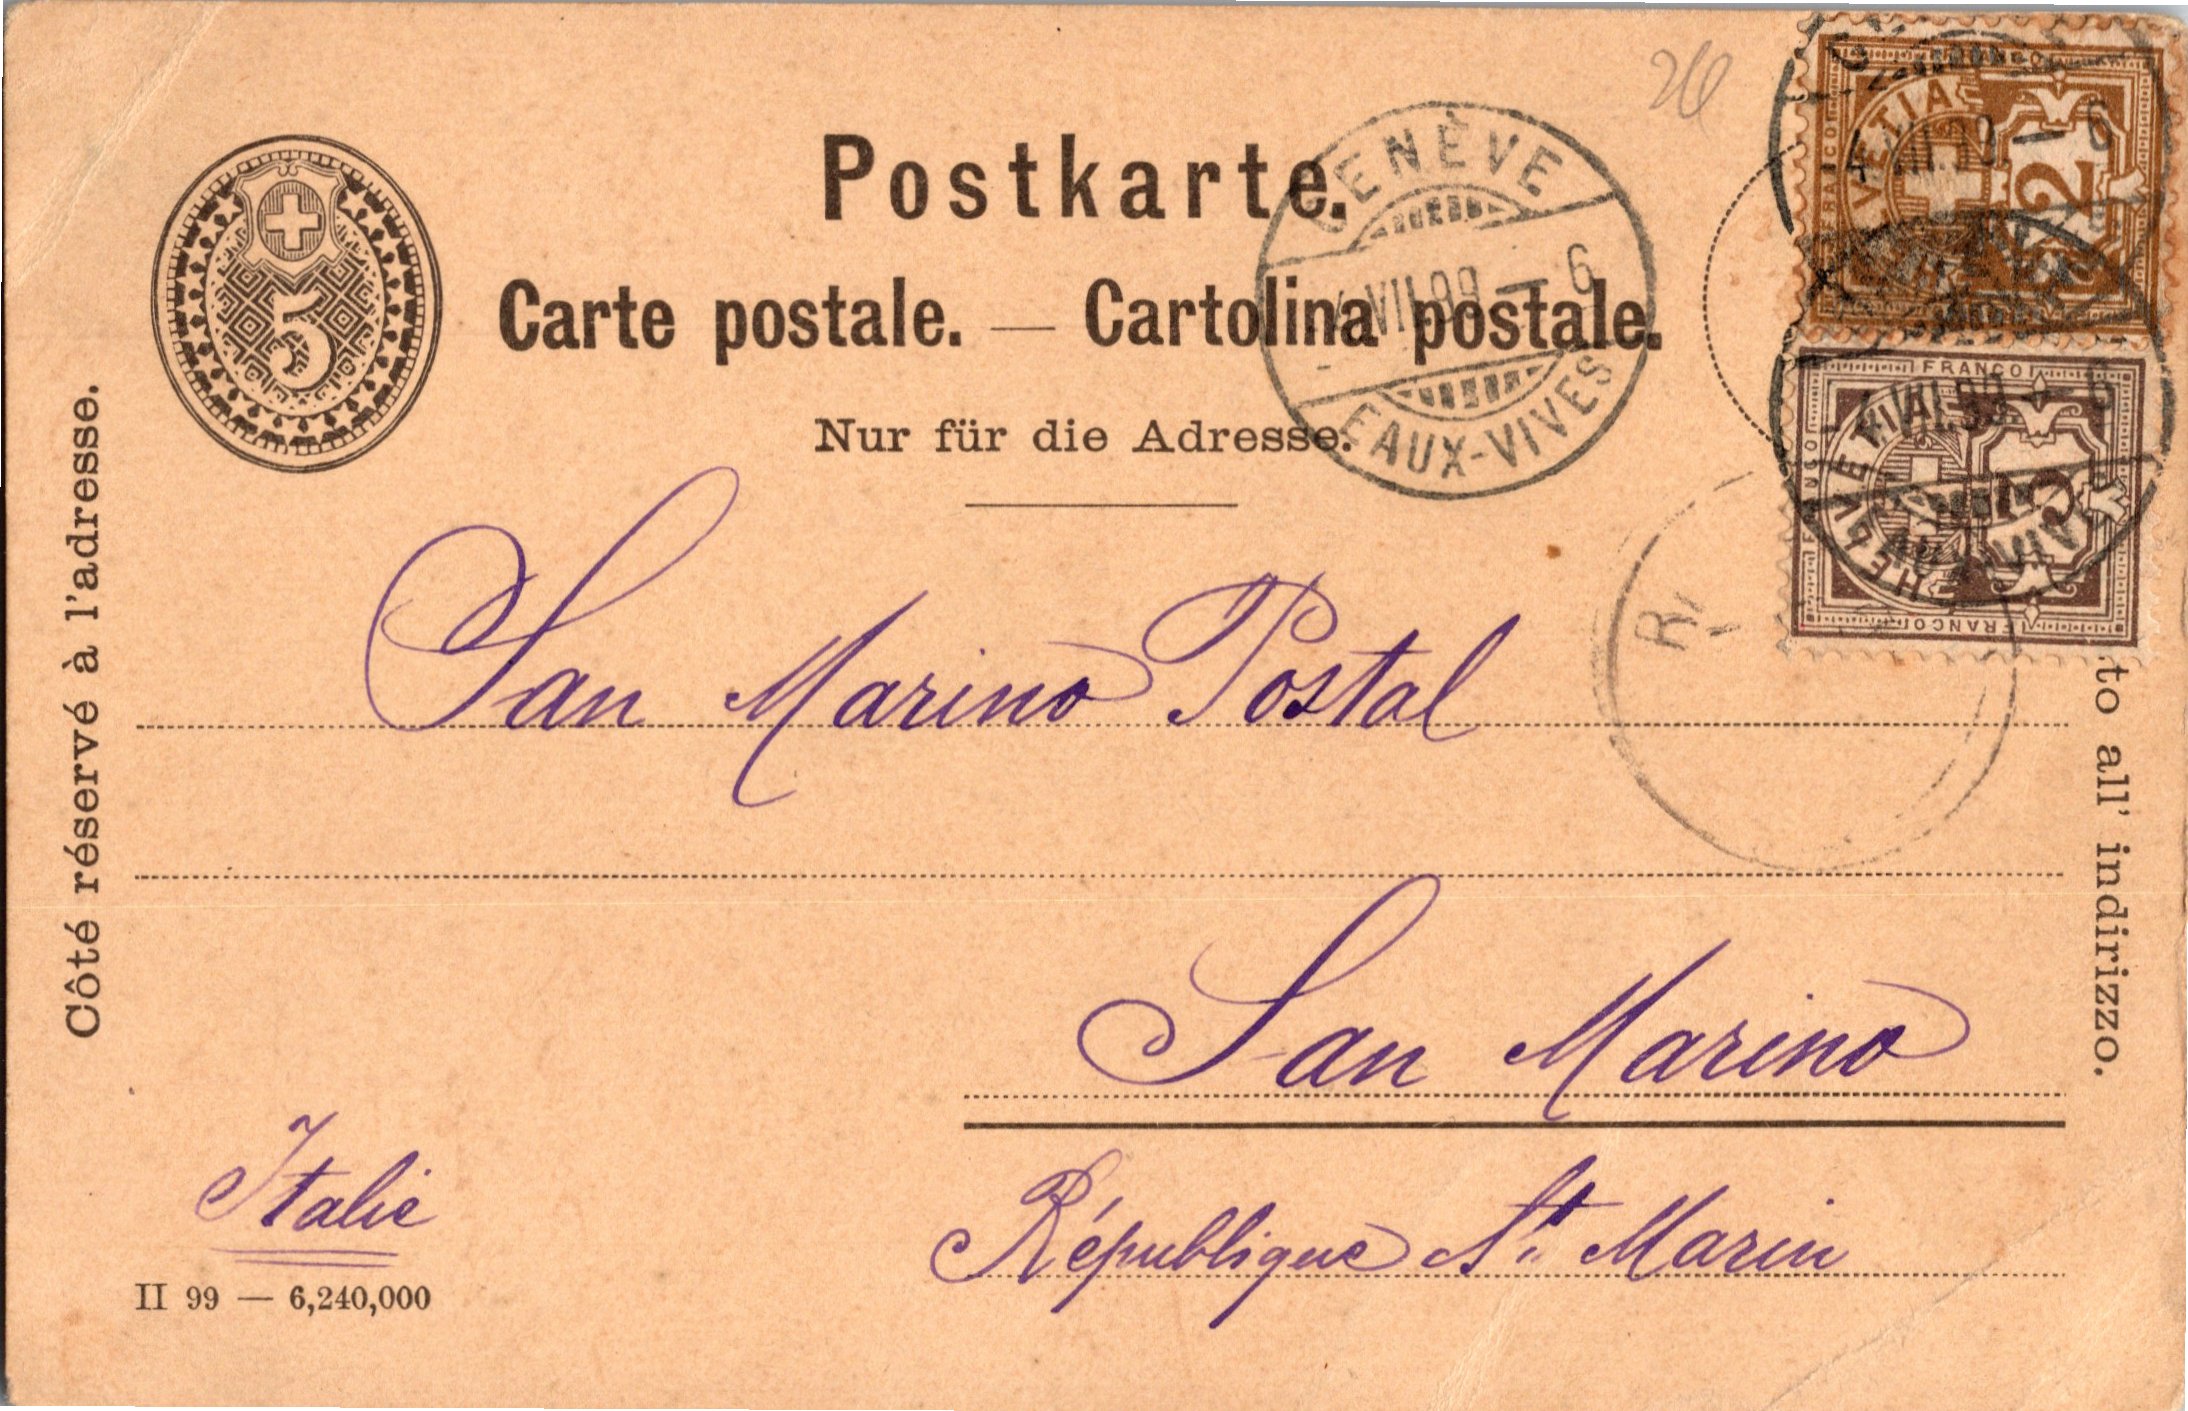 Postkarte.
Carte postale. — Cartolina postale.
Nur für die Adresse.
5
GENÈVE
VII.99 — 6
EAUX-VIVES
2
FRANCO
HELVETIA
5
FRANCO
Côté réservé à l'adresse.
to all' indirizzo.
San Marino Postal
San Marino
République St. Marin
Italie
II 99 — 6,240,000